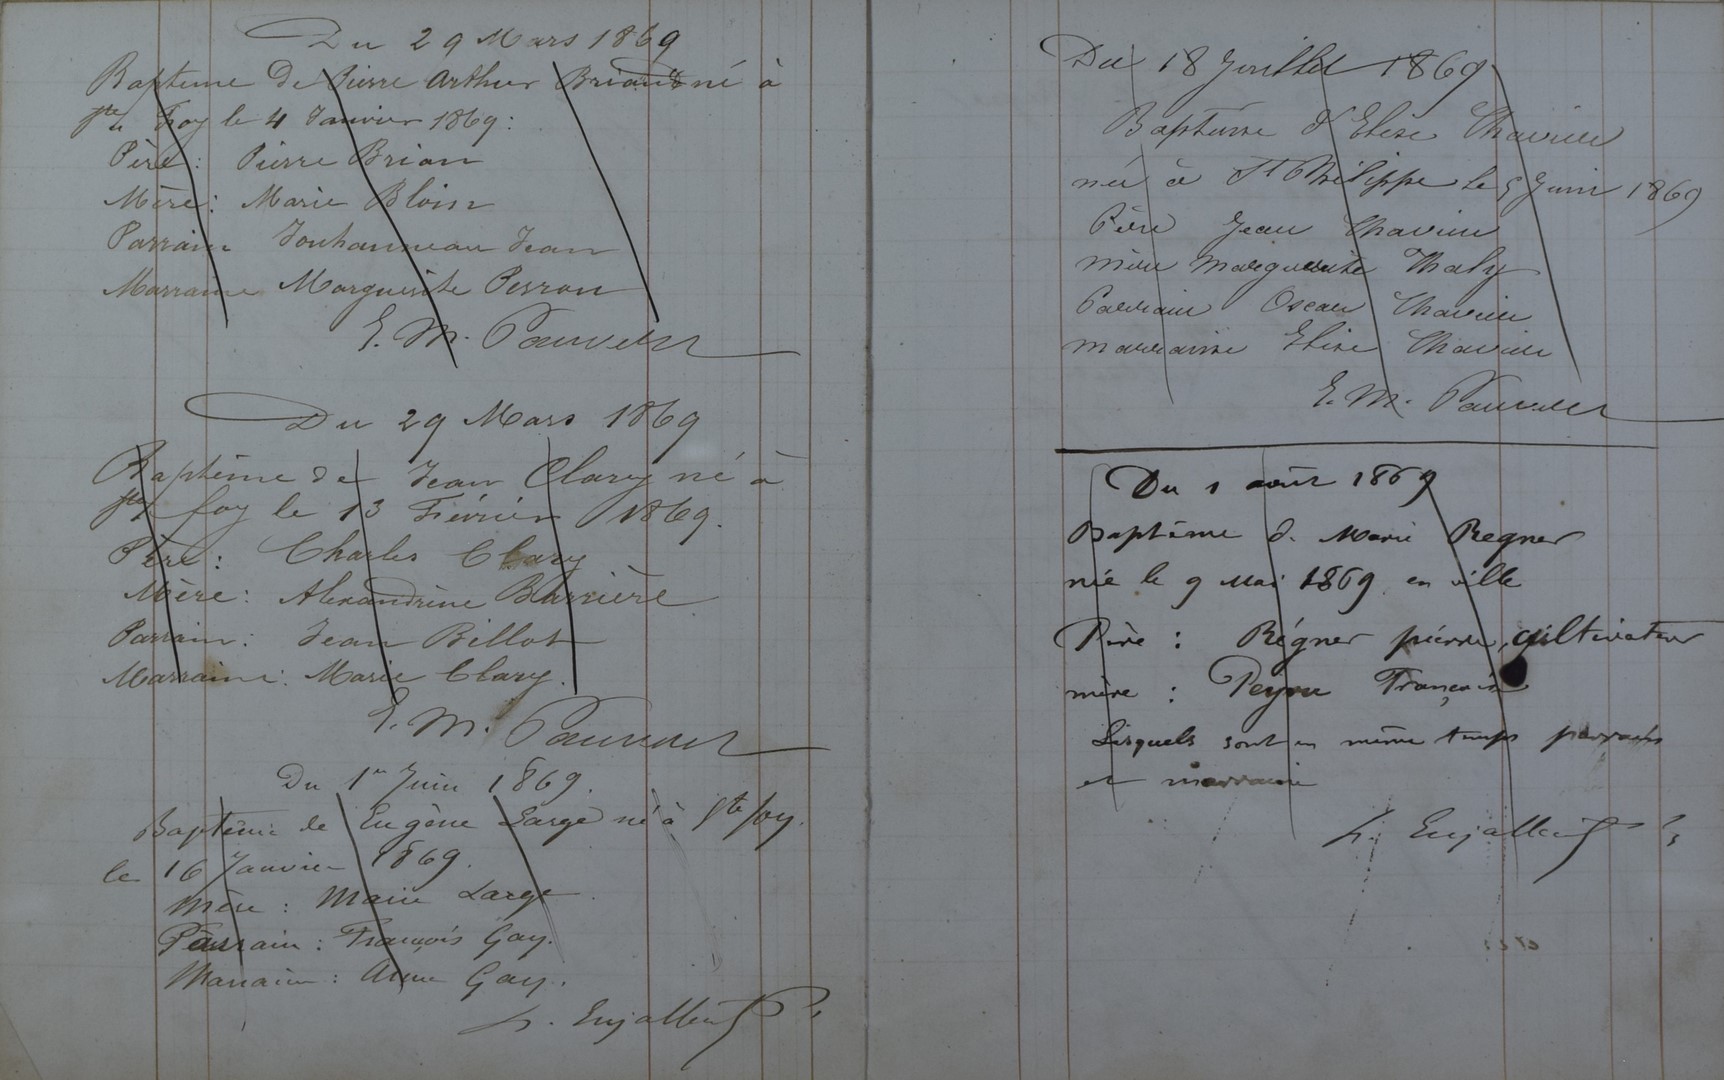 Du 29 Mars 1869
Bapteme de Pierre Arthur Briand né à
Ste Foy le 4 Janvier 1869:
Père: Pierre Brian
Mère: Marie Bloin
Parrain Jouhanneau Jean
Marraine Marguerite Perron
E. M.
Du 29 Mars 1869
Baptême de Jean Clary né à
Ste foy le 13 Février 1869.
Père: Charles Clary
Mère: Alexandrine Barrière
Parrain: Jean Billot
Marraine: Marie Clary.
E. M.
Du 1er Juin 1869.
Baptême de Eugène Large né à Ste foy.
le 16 Janvier 1869.
Mère: Marie Large
Parrain: François Gay.
Marraine: Anne Gay.
Enjalbert
Du 18 Juillet 1869
Baptême d'Elise
née à St Philippe le 5 Juin 1869
Père Jean
mère Marguerite Thaly
Parrain Oscar
marraine Elise
E. M.
Du 1 août 1869
Baptême d. Marie Regner
née le 9 Mai 1869 en ville
Père: Régner pierre, cultivateur
mère: Peyru
Lesquels sont en même temps parrain
et marraine
Enjalbert